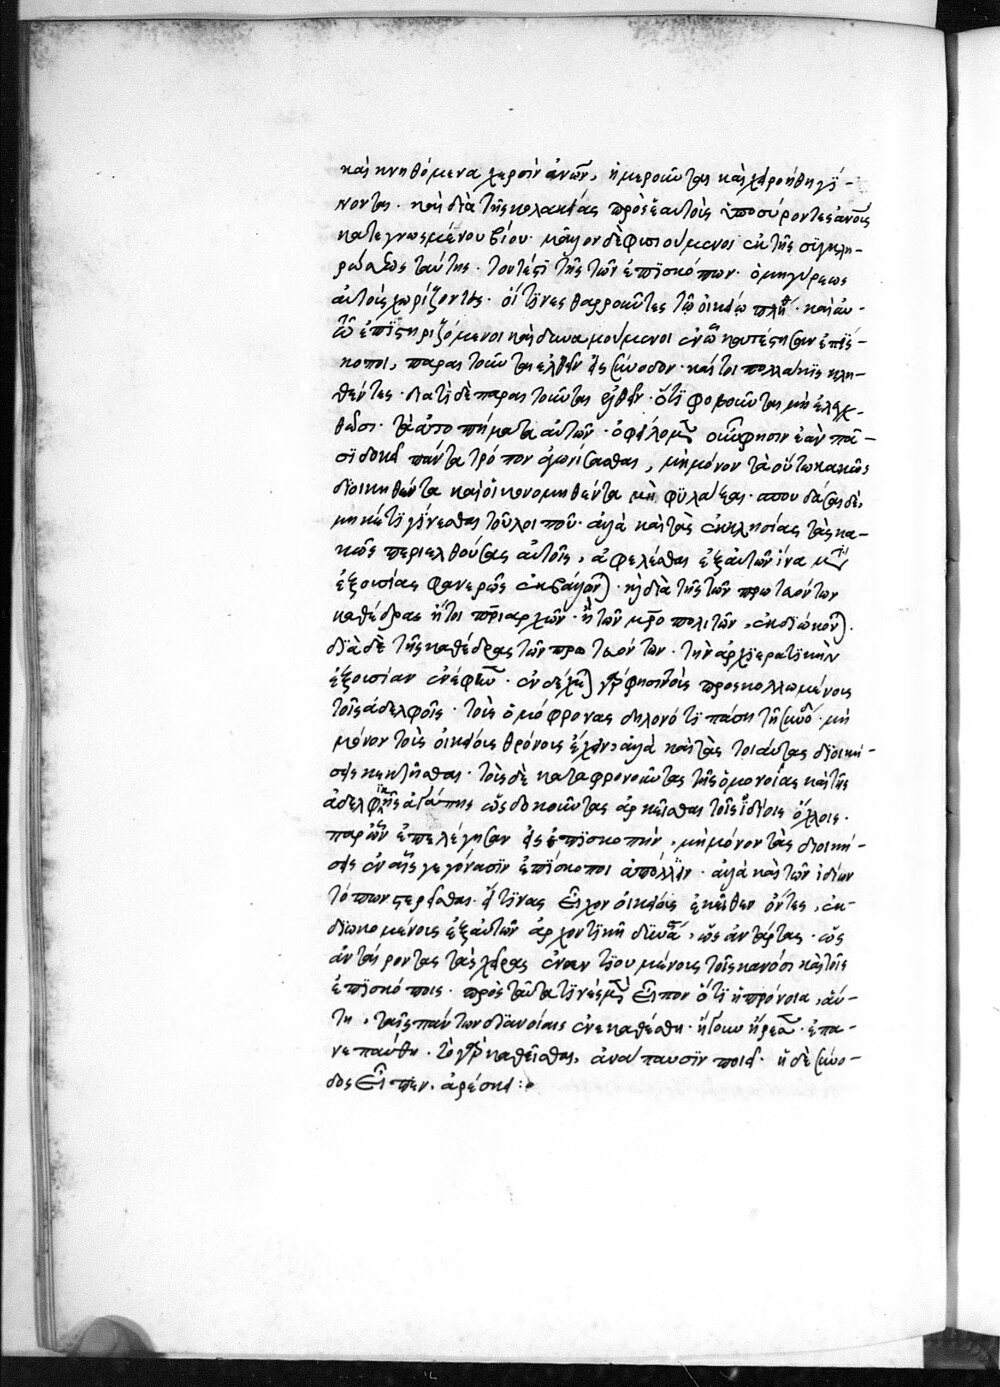 καὶ κνηθόμενα χερσὶν ἀνῶν, ἡμεροῦνται καὶ χειροήθη γί-
νονται. καὶ διὰ τῆς κολακείας πρὸς ἑαυτοὺς ὑποσύροντες ἀνοις
κατεγνωσμένου βίου. μᾶλλον δὲ φυσιούμενοι ἐκ τῆς συγκλη-
ρώσεως ταύτης. τουτέστι τῆς τῶν ἐπισκόπων ὁμηγύρεως
αὐτοὺς χωρίζοντες. οἵτινες θαρροῦντες τῷ οἰκείῳ πλή καὶ αυ-
τῶ ἐπιστηριζόμενοι καὶ δυναμούμενοι ἐν ὧ κατέστησαν ἐπίσ-
κοποι, παραιτοῦνται ἐλθεῖν εἰς σύνοδον. καίτοι πολλάκις κλη-
θέντες. διατί δὲ παραιτοῦνται ἐλθεῖν. ὅτι φοβοῦνται μὴ ἐλεγχ-
θῶσι τὰ ἀτοπήματα αὐτῶν. ὀφείλομεν οὖν φησιν ἐὰν πᾶ-
σι δοκεῖ πάντα τρόπον ἀγωνίσασθαι, μὴ μόνον τὰ οὕτω κακῶς
διοικηθέντα καὶ οἰκονομηθέντα μὴ φυλάξαι. σπουδάσαι δὲ,
μηκέτι γίνεσθαι τοῦ λοιποῦ. ἀλλὰ καὶ τὰς ἐκκλησίας τὰς κα-
κῶς περιελθούσας αὐτοῖς, ἀφελέσθαι ἐξ αὐτῶν ἵνα μετ
ἐξουσίας φανερῶς ἐκβάλλων). κὶ διὰ τῆς τῶν πρωτευόντων
καθέδρας ἤτοι πριαρχῶν. ἢ τῶν μροπολιτῶν, ἐκδιώκων).
διὰ δὲ τῆς καθέδρας τῶν πρωτευόντων. τὴν ἀρχιερατικὴν
ἐξουσίαν ἐνέφηνεν. ἐνδέχε) γάρ φησι τοὺς προσκολλωμένοις
τοῖς ἀδελφοῖς. τοὺς ὁμόφρονας δηλονότι πάση τῆ συνόδω. μὴ
μόνον τοὺς οἰκείοις θρόνοις ἔχειν ἀλλὰ καὶ τὰς τοιαύτας διοική-
σεις κεκτῆσθαι. τοὺς δὲ καταφρονοῦντας τῆς ὁμονοίας καὶ τῆς
ἀδελφικῆς ἀγάπης ὡς δοκοῦντας ἀρκεῖσθαι τοῖς ἰδίοις ὄχλοις.
παρ ὧν ἐπελέγησαν εἰς ἐπισκοπὴν, μὴ μόνον τὰς διοική-
σεις ἐν αἷς γεγόνασιν ἐπίσκοποι ἀπολλύειν. ἀλλὰ καὶ τῶν ἰδίων
τόπων στερεῖσθαι. οὕς τινας εἶχον οἰκείοις ἐκεῖθεν ὄντες, ἐκ-
διωκομένοις ἐξ αὐτῶν ἀρχοντικῆ δυνα, ὡς ἀντάρτας. ὡς
ἀνταίροντας τὰς χεῖρας ἐναντιουμένοις τοῖς κανόσι καὶ τοῖς
ἐπισκόποις. πρὸς ταῦτα τινὲς μὲν εἶπον ὅτι ἡ πρόνοια, αὕ-
τη, ταῖς πάντων διανοίαις ἐνεκαθέσθη. ἤγουν ἤρεσεν. ἐπα-
νεπαύθη. τὸ γὰρ καθεῖσθαι, ἀνάπαυσιν ποιεῖ. ἡ δὲ σύνο-
δος εἶπεν. ἀρέσκει: